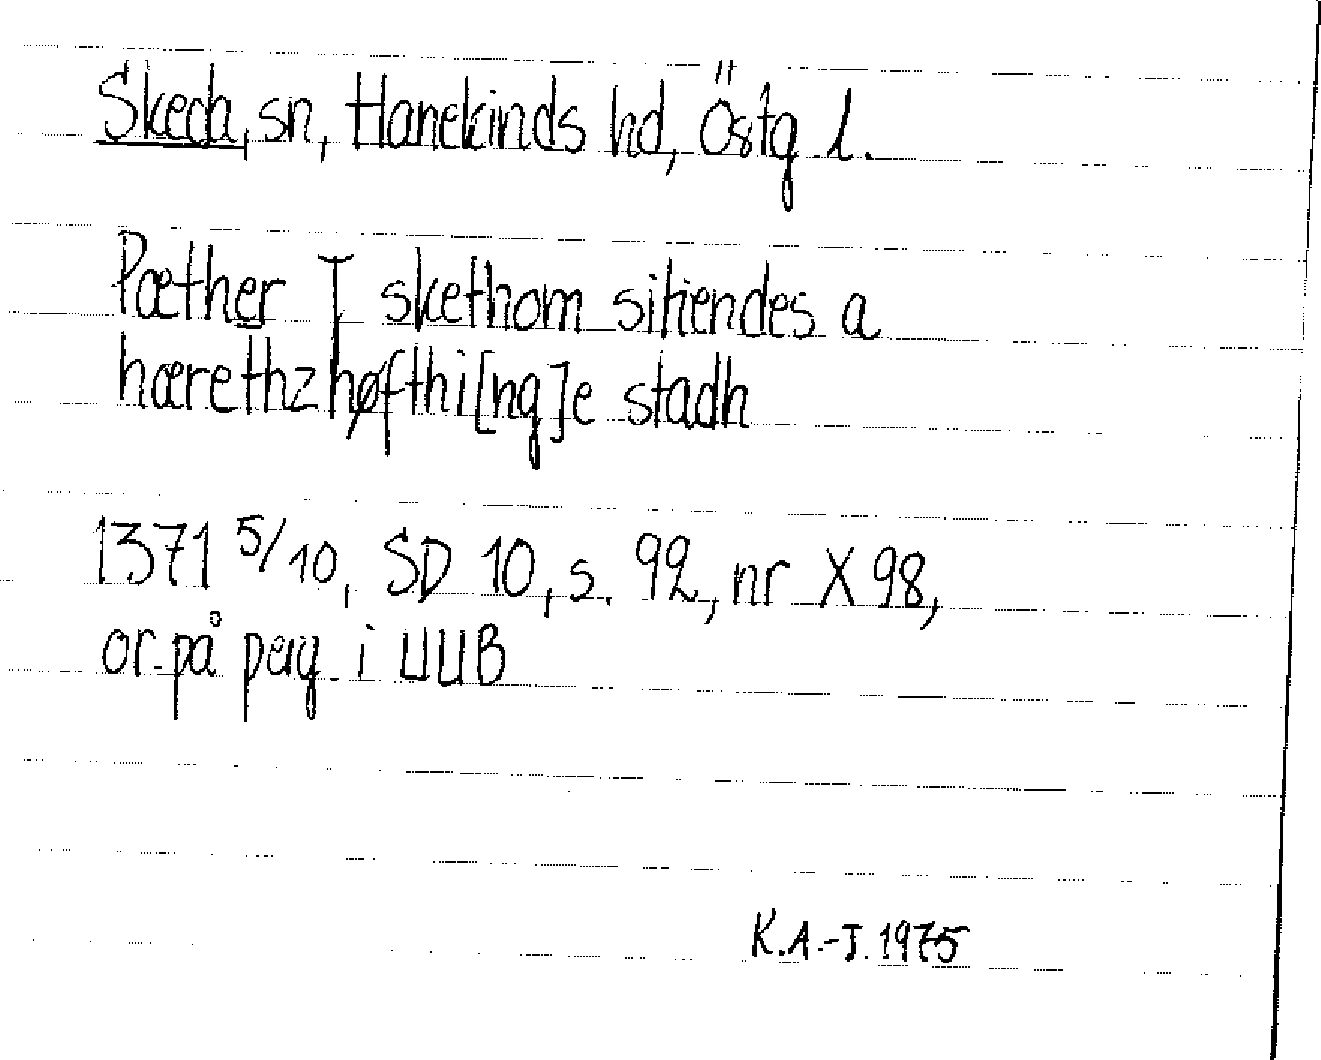 Skeda, sn, Hanekinds hd, Östg l.
Pæther I skethom sitiendes a
hærethzhøfthi[ng]e stadh
1371 5/10, SD 10, s. 92, nr X 98,
or på perg i UUB
K.A.-J. 1975